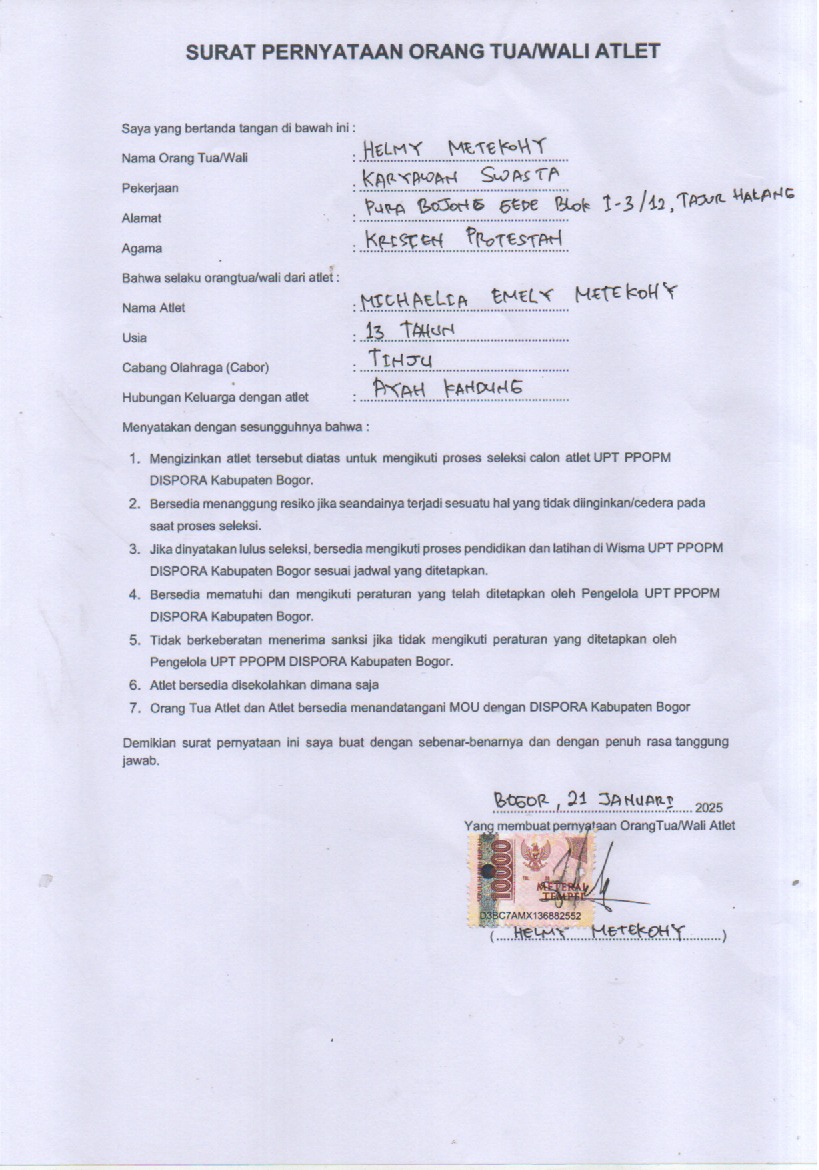 SURAT PERNYATAAN ORANG TUA/WALI ATLET
Saya yang bertanda tangan di bawah ini :
Nama Orang Tua/Wali : HELMY METEKOHY
Pekerjaan : KARYAWAN SWASTA
Alamat : PURA BOJONG GEDE Blok I-3/12, TAJUR HALANG
Agama : KRISTEN PROTESTAN
Bahwa selaku orangtua/wali dari atlet :
Nama Atlet : MICHAELIA EMELY METEKOHY
Usia : 13 TAHUN
Cabang Olahraga (Cabor) : TINJU
Hubungan Keluarga dengan atlet : AYAH KANDUNG
Menyatakan dengan sesungguhnya bahwa :
1. Mengizinkan atlet tersebut diatas untuk mengikuti proses seleksi calon atlet UPT PPOPM
DISPORA Kabupaten Bogor.
2. Bersedia menanggung resiko jika seandainya terjadi sesuatu hal yang tidak diinginkan/cedera pada
saat proses seleksi.
3. Jika dinyatakan lulus seleksi, bersedia mengikuti proses pendidikan dan latihan di Wisma UPT PPOPM
DISPORA Kabupaten Bogor sesuai jadwal yang ditetapkan.
4. Bersedia mematuhi dan mengikuti peraturan yang telah ditetapkan oleh Pengelola UPT PPOPM
DISPORA Kabupaten Bogor.
5. Tidak berkeberatan menerima sanksi jika tidak mengikuti peraturan yang ditetapkan oleh
Pengelola UPT PPOPM DISPORA Kabupaten Bogor.
6. Atlet bersedia disekolahkan dimana saja
7. Orang Tua Atlet dan Atlet bersedia menandatangani MOU dengan DISPORA Kabupaten Bogor
Demikian surat pernyataan ini saya buat dengan sebenar-benarnya dan dengan penuh rasa tanggung
jawab.
BOGOR, 21 JANUARI 2025
Yang membuat pernyataan OrangTua/Wali Atlet
10000
METERAI
TEMPEL
D3BC7AMX136882552
(HELMY METEKOHY)